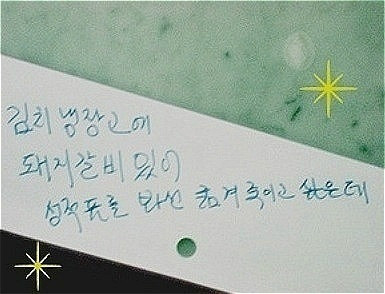 김치냉장고에
돼지갈비 있어
성적표를 봐선 굶겨 죽이고 싶은데